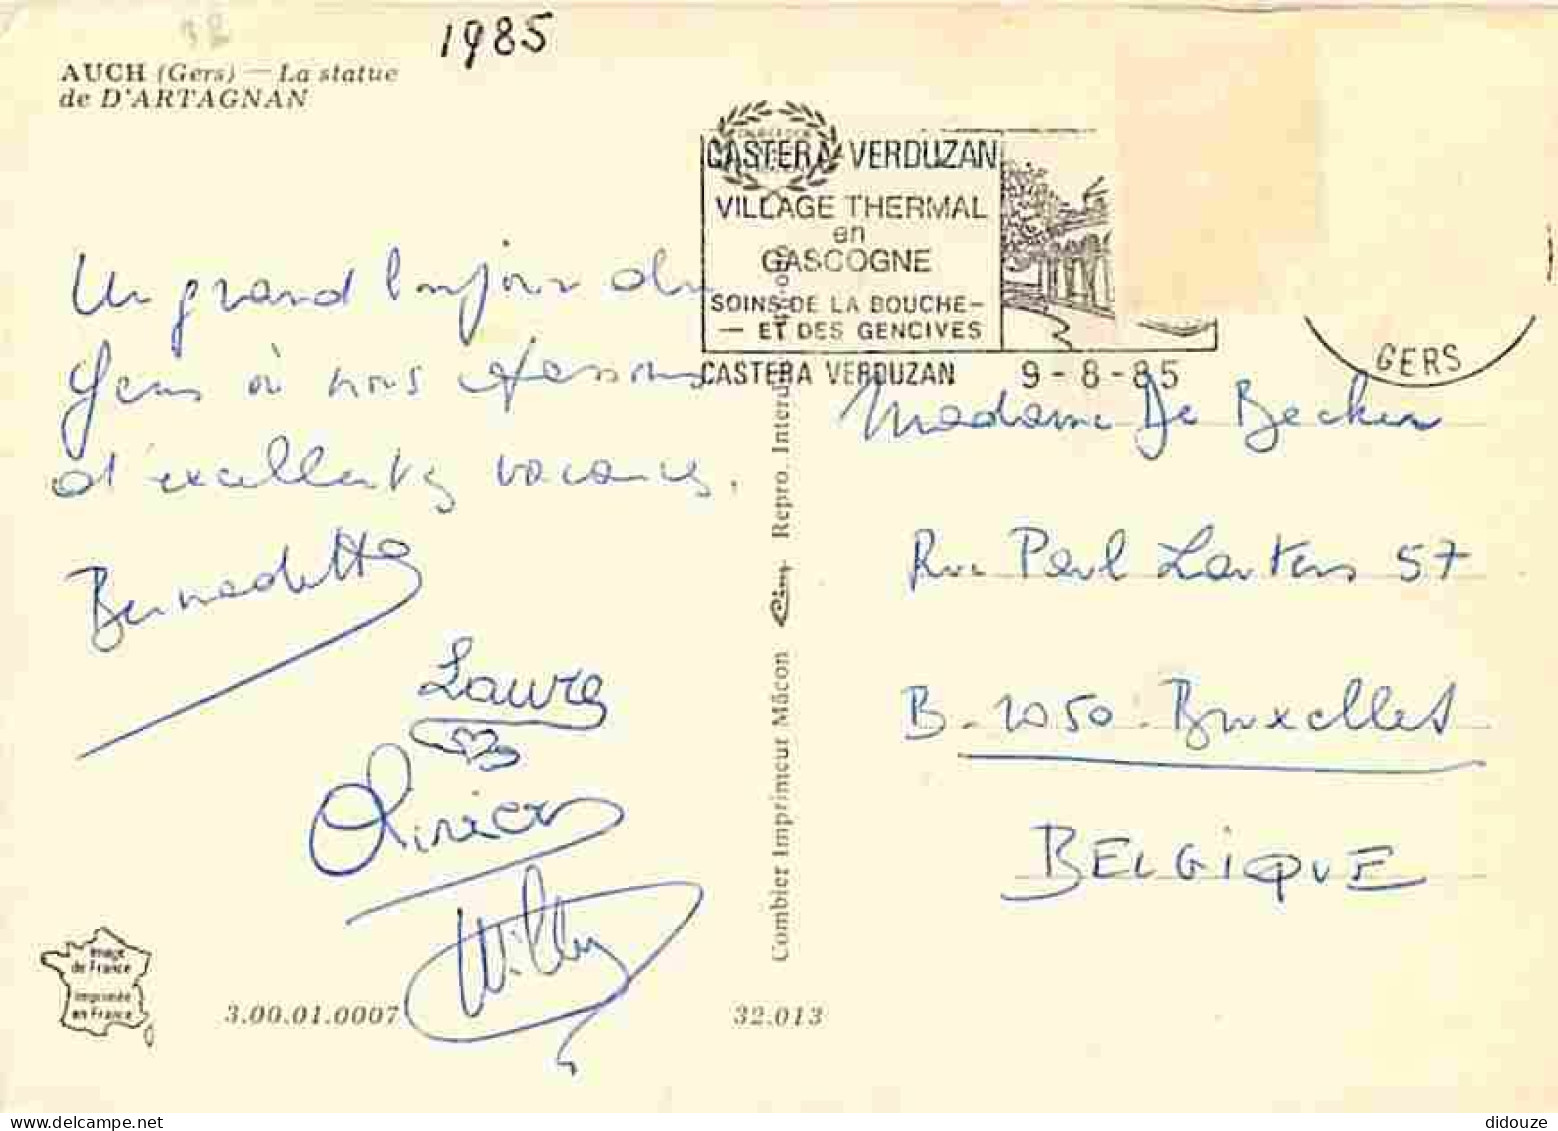 1985
AUCH (Gers) — La statue
de D'ARTAGNAN
CASTERA VERDUZAN
VILLAGE THERMAL
en
GASCOGNE
SOINS DE LA BOUCHE-
— ET DES GENCIVES
CASTERA VERDUZAN 9-8-85
GERS
Un grand bonjour du
Gers où nous passons
d'excellentes vacances.
Bernadette
Laure
Olivier
Willy
Madame De Becker
Rue Paul Lauters 57
B-1050-Bruxelles
BELGIQUE
Combier Imprimeur Mâcon Cim Repro. Interdite
Image
de France
Imprimée
en France
3.00.01.0007
32.013